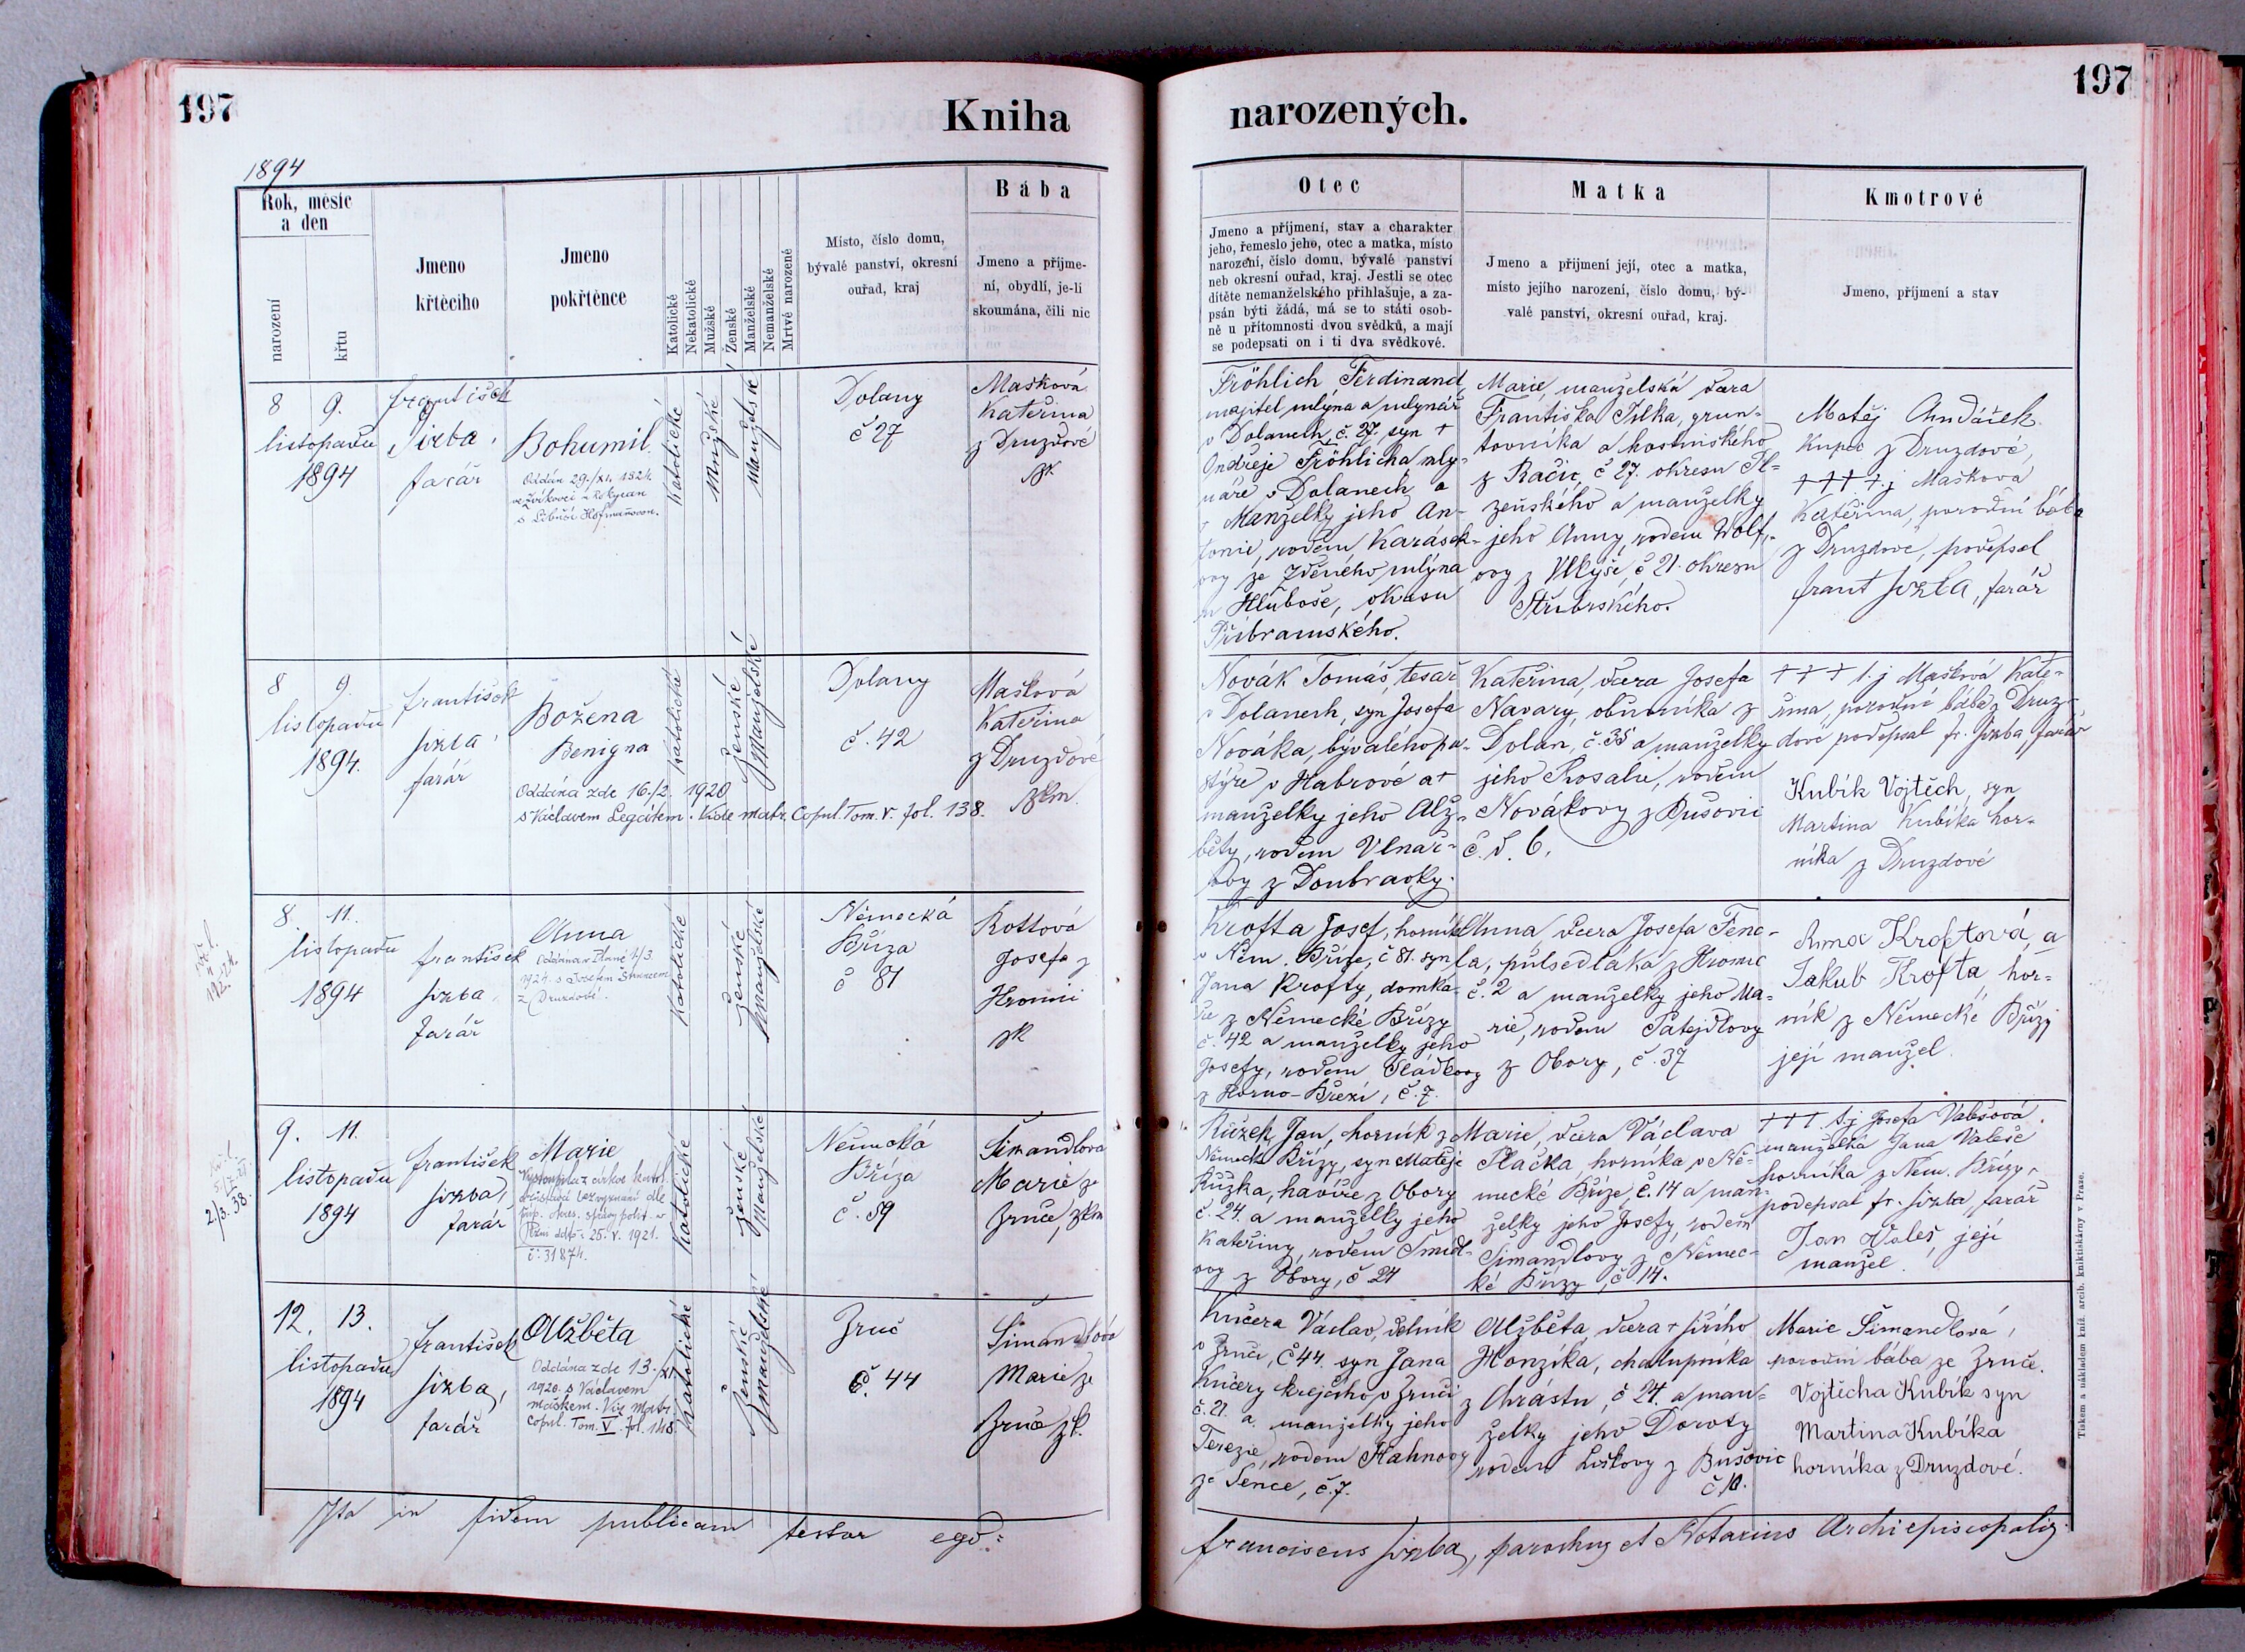 197
Kniha
1894
Rok, měsíc
a den
narození
křtu
Jmeno
křtěcího
Jmeno
pokřtěnce
Katolické
Nekatolické
Mužské
Ženské
Manželské
Nemanželské
Mrtvě narozené
Místo, číslo domu,
bývalé panství, okresní
ouřad, kraj
Bába
Jmeno a příjme-
ní, obydlí, je-li
skoumána, čili nic
8 9.
listopadu
1894
František
Jirba,
farář
Bohumil.
Oddán 29./XI. 1924.
s Libuší Hofmanovou.
Katolické
Mužské
Manželské
Dolany
č 27
Mašková
Kateřina
z Druzdové
zk
8 9.
listopadu
1894.
František
Jirba,
farář
Božena
Benigna
Oddána zde 16./2. 1920
s Václavem Legátem. Vide matr. Copul. Tom. V. fol. 138.
Katolické
Ženské
Manželské
Dolany
č. 42
Mašková
Kateřina
z Druzdové
zkm.
8. 11.
listopadu
1894
František
Jirba,
farář
Anna
1924. s Josefem
z Druzdové.
Katolické
Ženské
Manželské
Německá
Bříza
č 81
Kottová
Josefa z
Hromic
zk
9. 11.
listopadu
1894
2./3. 38.
František
Jirba,
farář
Marie
Vystoupila z církve katol.
zůstává bez vyznání dle
příp. okres. správy polit. v
Plzni ddto. 25. V. 1921.
č: 31874.
Katolické
Ženské
Manželské
Německá
Bříza
č. 59
Šimandlova
Marie ze
Zruče, zkm
12. 13.
listopadu
1894
František
Jirba,
farář
Alžběta
Oddána zde 13.
1920. s Václavem
Maškem. Viz matr.
copul. Tom. V. fol. 148.
Katolické
Ženské
Manželské
Zruč
č. 44
Šimandlová
Marie ze
Zruče zk.
Ita in fidem publicam testor ego:
197
narozených.
Otec
Jmeno a příjmení, stav a charakter
jeho, řemeslo jeho, otec a matka, místo
narození, číslo domu, bývalé panství
neb okresní ouřad, kraj. Jestli se otec
dítěte nemanželského přihlašuje, a za-
psán býti žádá, má se to státi osob-
ně u přítomnosti dvou svědků, a mají
se podepsati on i ti dva svědkové.
Matka
Jmeno a příjmení její, otec a matka,
místo jejího narození, číslo domu, bý-
valé panství, okresní ouřad, kraj.
Kmotrové
Jmeno, příjmení a stav
Fröhlich Ferdinand,
majitel mlýna a mlynář
v Dolanech, č. 27, syn +
Ondřeje Fröhlicha mly-
náře v Dolanech a
Manželky jeho An-
tonie, rodem Karásek-
ovy ze mlýna
Hluboše, okresu
Příbramského.
Marie, manželská dcera
Františka Jílka, grun-
tovníka a hostinského
z Račic, č 27. okresu Pl-
zeňského a manželky
jeho Anny, rodem Wolf-
ovy z Vlkýše, č 21. okresu
Stříbrského.
Matěj Anděáček
Kupec z Druzdové,
++++ t.j. Mašková
Kateřina, porodní bába
z Druzdové, podepsal
Frant Jirba, farář
Novák Tomáš, tesař
v Dolanech, syn Josefa
Nováka, bývalého pa-
stýře v Habrové a +
manželky jeho Alž-
běty, rodem Vlnař-
ovy z Doubravky.
Kateřina, dcera Josefa
Navary, obuvníka z
Dolan, č. 35 a manželky
jeho Rosalie, rodem
Novákovy z Bušovic
č. d. 6.
+++ t.j Mašková Kate-
řina, porodní bába z Druz-
dové podepsal Fr. Jirba, farář
Kubík Vojtěch, syn
Martina Kubíka hor-
níka z Druzdové
Krofta Josef, horník
v Něm. Bříze, č 81. syn
Jana Krofty, domka-
ře z Německé Břízy
č. 42 a manželky jeho
Josefy, rodem Sládkovy
z Horno-Březí, č. 7.
Anna, dcera Josefa Tenc-
la, půlsedláka z Hromic
č. 2 a manželky jeho Ma-
rie, rodem Patejdlovy
z Obory, č. 37
Anna Kroftová, a
Jakub Krofta, hor-
ník z Německé Břízy
její manžel.
Růžek, Jan, horník z
Německé Břízy, syn Matěje
Růžka, havíře z Obory
č. 24. a manželky jeho
Kateřiny, rodem Šmídl-
ovy z Obory, č 24
Marie, dcera Václava
Plačka, horníka v Ně-
mecké Bříze, č. 14 a man-
želky jeho Josefy, rodem
Šimandlovy z Němec-
ké Břízy, č 14.
+++ t.j Josefa Valešová
manželka Jana Valeše
horníka z Něm. Břízy,
podepsal Fr. Jirba, farář
Jan Valeš, její
manžel.
Kučera Václav, dělník
v Zruči, č 44. syn Jana
Kučery krejčího v Zruči
č. 21. a manželky jeho
Terezie, rodem Hahnovy
ze Sence, č. 7.
Alžběta, dcera + Jiřího
Honzíka, chalupníka
z Chrástu, č 24. a man-
želky jeho Doroty
rodem Liškovy z Bušovic
č 10.
Marie Šimandlová,
porodní bába ze Zruče.
Vojtěcha Kubík syn
Martina Kubíka
horníka z Druzdové.
Franciscus Jirba, parochus et Notarius Archiepiscopalis.
Tiskem a nákladem kníž. arcib. knihtiskárny v Praze.